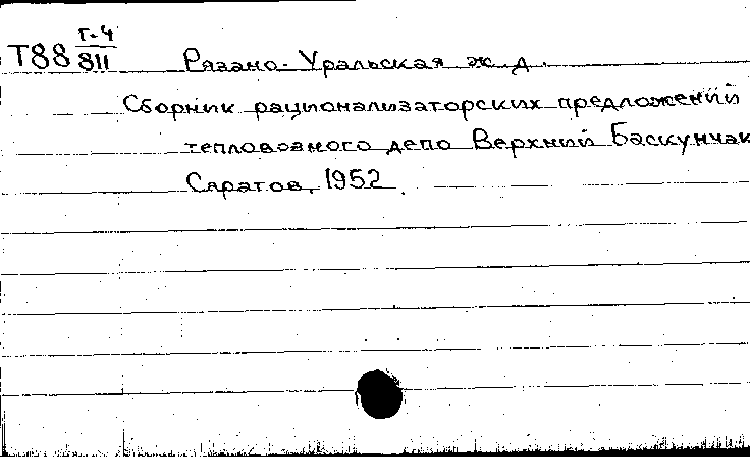 Т88 Г-4/811
Рязано-Уральская ж.д.
Сборник рационализаторских предложений
тепловозного депо Верхний Баскунчак
Саратов, 1952.